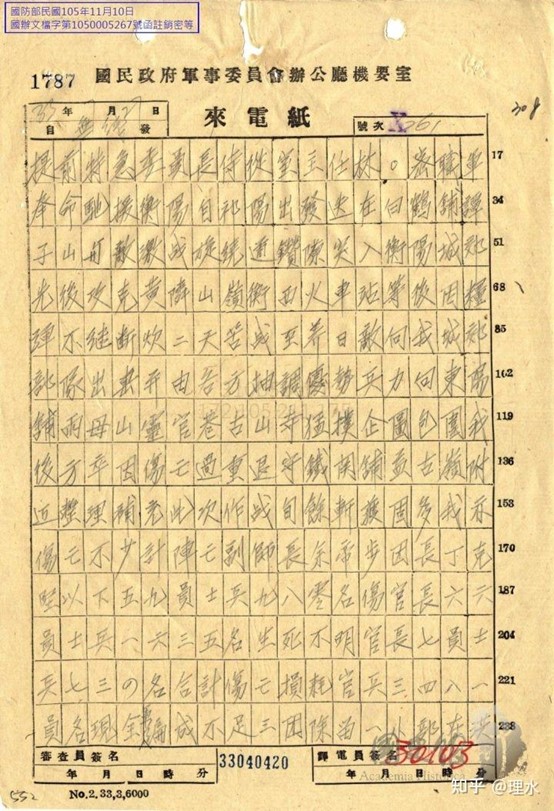 國防部民國105年11月10日
國辦文檔字第1050005267號函註銷密等
1787 國民政府軍事委員會辦公廳機要室
308
年 月 日
自 發
來電紙
號次
提前特急委員長侍從室主任林。密職軍 17
奉命馳援衡陽自祁陽出發迭在白鶴舖譚 34
子山与敵激战旋繞道鑽隙突入衡陽城郊 51
先後攻克黃 山嶺衡西火車站等後因糧 68
彈不继断炊二天苦战至养日敵向我城郊 85
部隊出擊并由各方抽調優勢兵力向東陽 102
舖雨母山靈官巷古山寺猛撲企圖包圍我 119
後方卒因傷亡過重退守鐵関舖 古嶺附 136
近整理補充此次作战 斬獲固多我亦 153
傷亡不少計陣亡副師長余 步团長丁克 170
堅以下五九員士兵九八零名傷官長六六 187
員士兵一六三五名生死不明官長七員士 204
兵七三 名合計傷亡損耗官兵三四八一 221
員名現全 編成不足三团除 一小部在 238
審查員簽名
年 月 日 時 分
33040420
譯電員簽名
30103
年 月 日 時
No.2.33,3,6000
552
Academia Historica
知乎 @理水